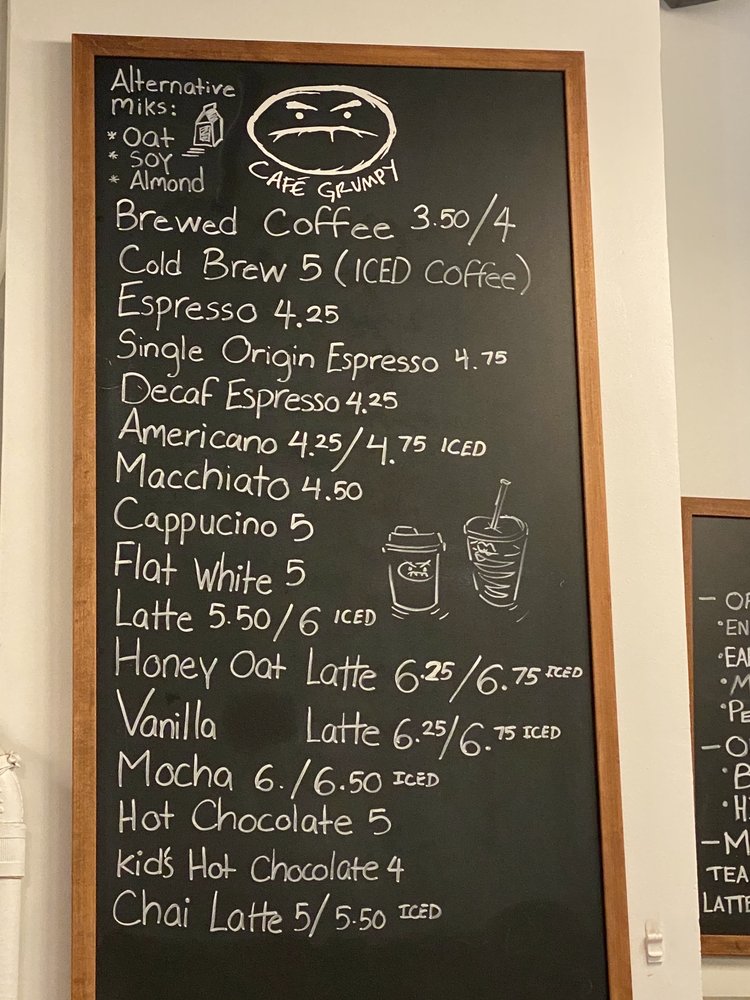 Alternative
Miks:
* Oat
* SOY
* Almond
CAFÉ GRUMPY
Brewed Coffee 3.50/4
Cold Brew 5 (ICED Coffee)
Espresso 4.25
Single Origin Espresso 4.75
Decaf Espresso 4.25
Americano 4.25/4.75 ICED
Macchiato 4.50
Cappucino 5
Flat White 5
Latte 5.50/6 ICED
Honey Oat Latte 6.25/6.75 ICED
Vanilla Latte 6.25/6.75 ICED
Mocha 6./6.50 ICED
Hot Chocolate 5
Kid's Hot Chocolate 4
Chai Latte 5/5.50 ICED
TEA
LATTE